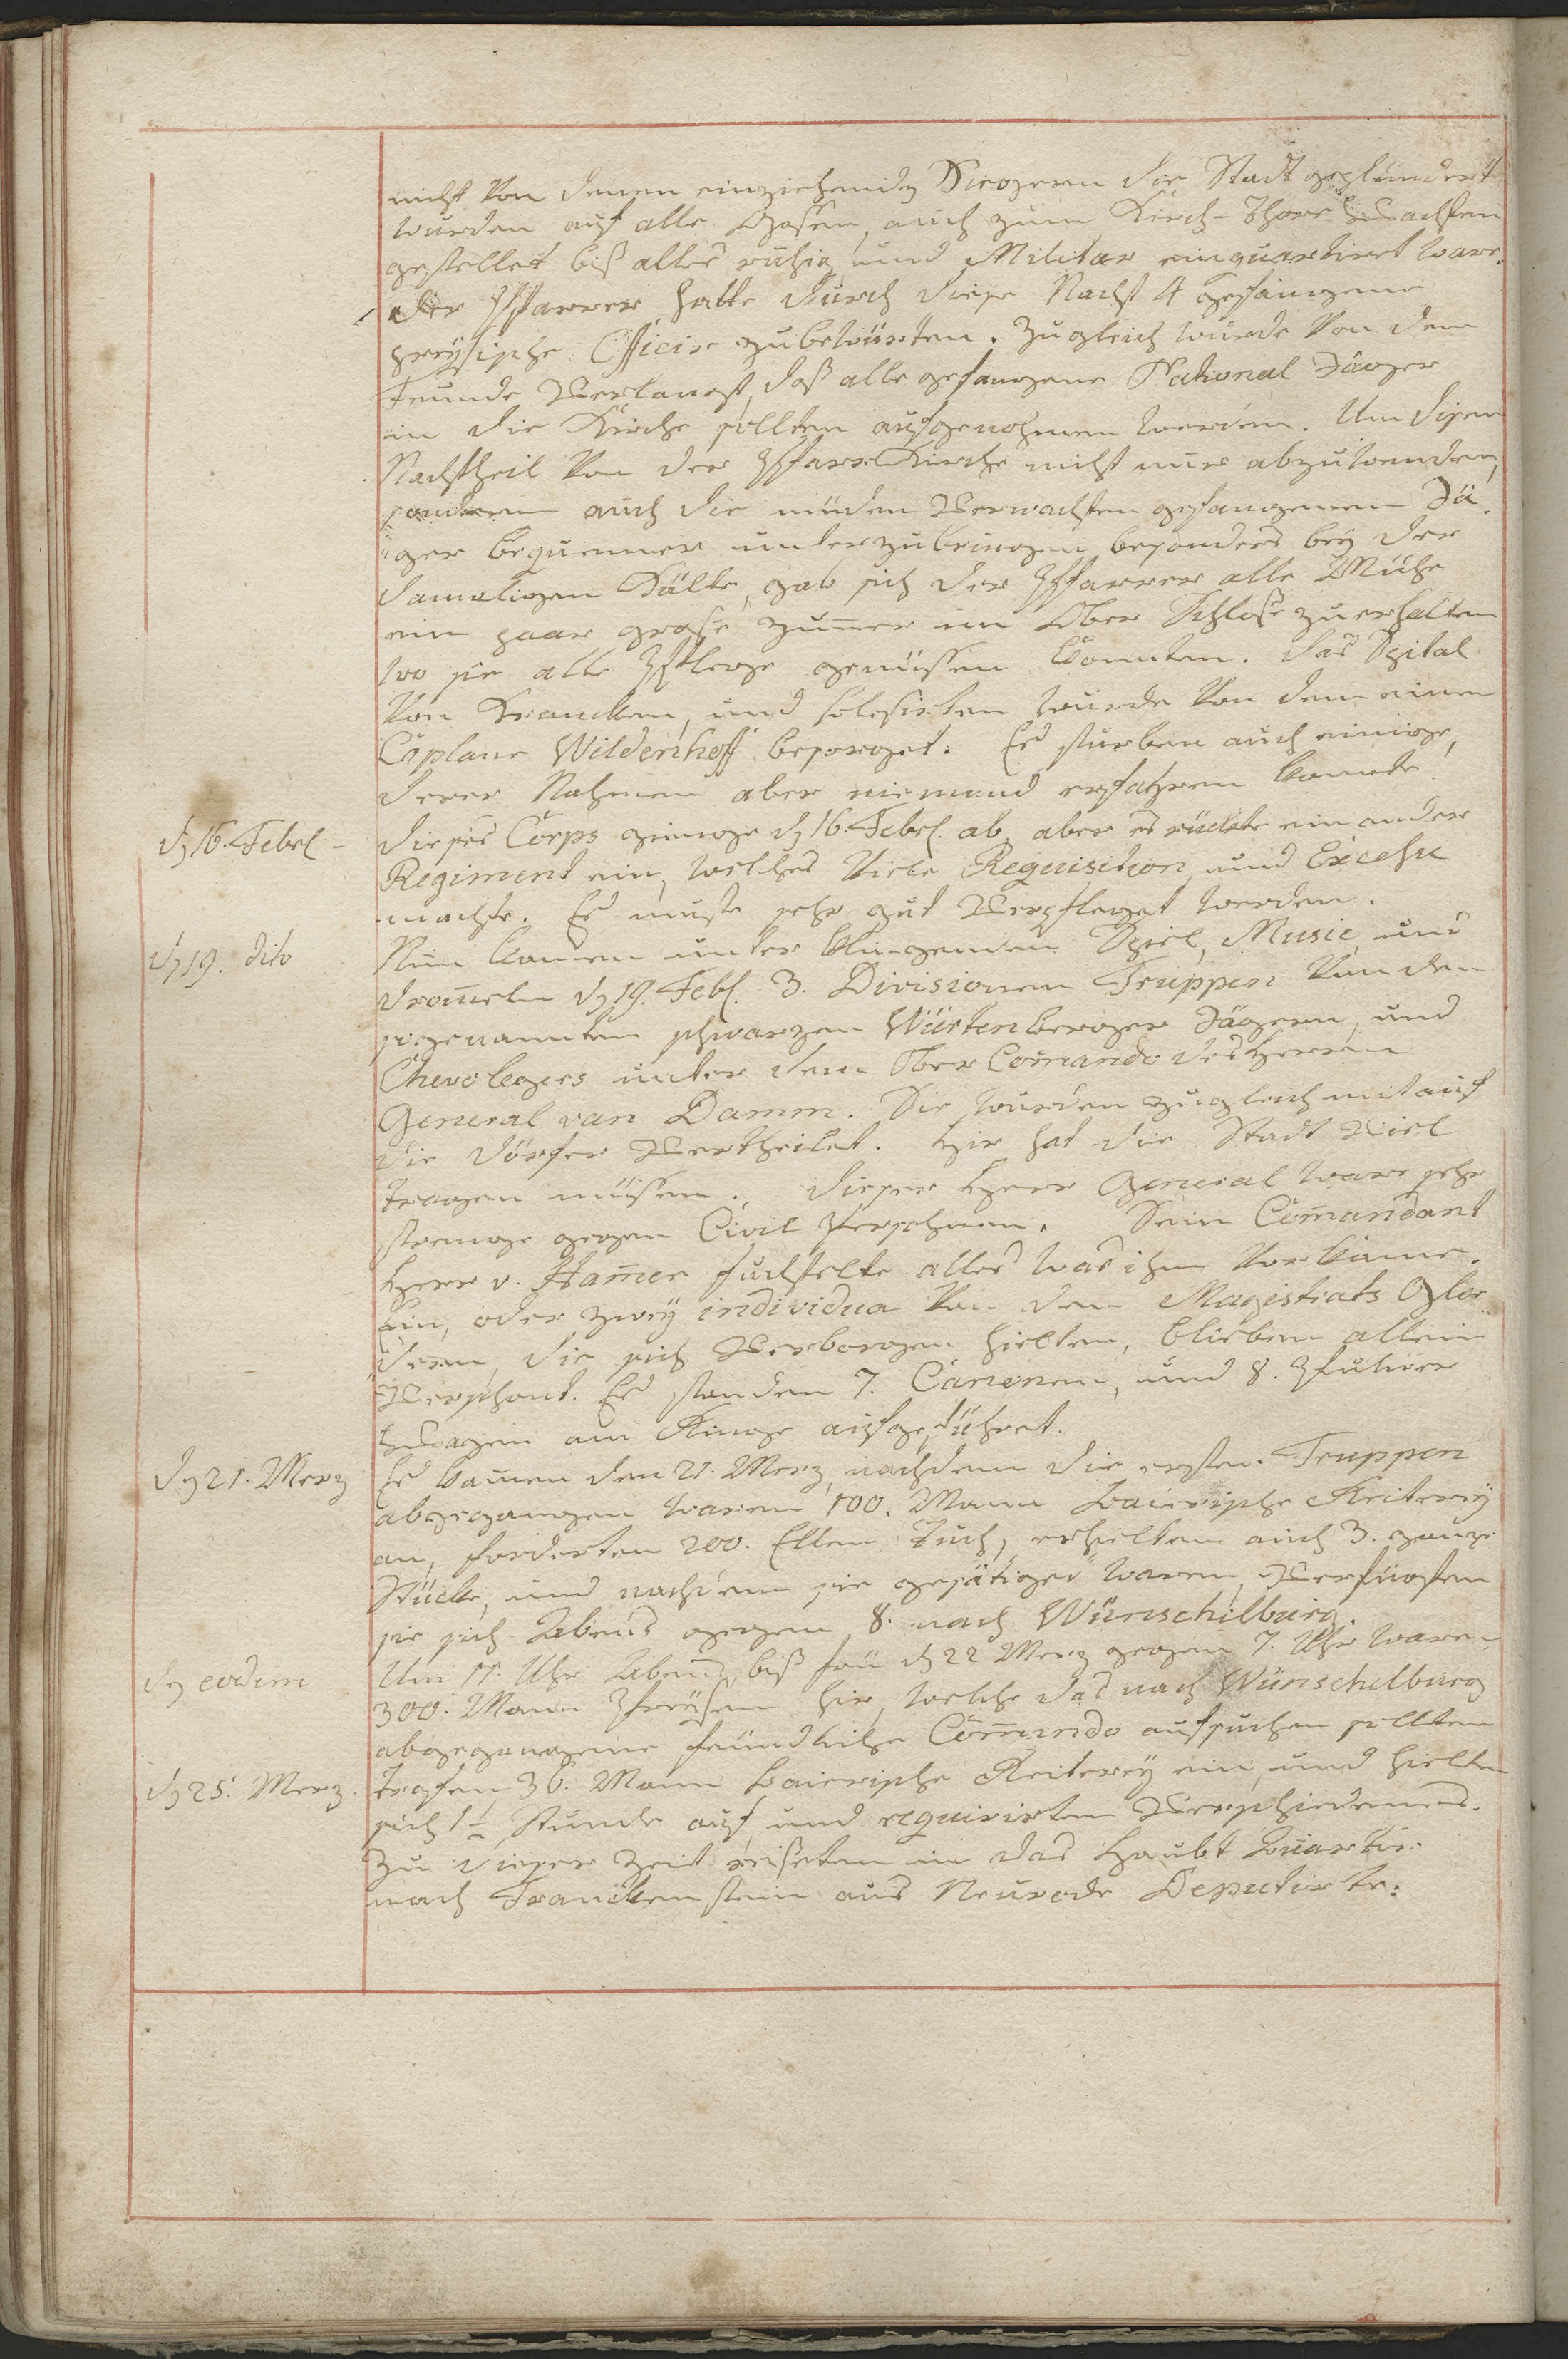 nicht von denen einziehend Siegern die Stadt geplündert
wurden auf alle Gassen, auch zum Kirch-Thore Wachten
gestellet biß alles ruhig und Militar einquartiret ware.
Der Pfarrer hatte durch diese Nacht 4 gefangene
preüsische Officire zubewürten. Zugleich wurde von dem
Feunde verlangt, daß alle gefangene National Jäger
in die Kirche sollten aufgenohmen werden. Um disen
Nachtheil von der Pfarr Kirche nicht nur abzuwenden,
sondern auch die müden verwachten gefangenen Jä
ger bequemer unterzubringen besonders bey der
damaligen Kälte, gab sich der Pfarrer alle Mühe
ein paar große Zimmer im Ober Schloße zuerhalten
wo sie alle Pflege genüßen konnten. Das Spital
von Krancken, und blesirten wurde von dem einen
Caplane Wildenhoff besorget. Es sturben auch einige,
derer Nahmen aber niemand erfahren konnte.
d 16. Febrl -
Dieses Corps gienge d 16. Febrl. ab, aber es rückte ein ander
Regiment ein, welches viele Requisition, und Excesse
machte. Es muste sehr gut verpfleget werden.
d 19. dito
Nun kamen unter klingenden Spiel, Music, und
Tromeln d 19. Febl. 3. Divisionen Truppen von den
sogenannten schwarzen Würtenberger Jägern, und
Chevolegers unter dem Ober Comando des Herren
General van Damm. Sie wurden zugleich mit auf
die Dörfer vertheilet. Hir hat die Stadt viel
tragen müßen. Dieser Herr General ware sehr
strenge gegen Civil Persohnen. Sein Comandant
Herr v. Hamer fuchtelte alles was ihm vorkame.
Ein, oder zwey individua von dem Magistrats Glie
dern, die sich verborgen hielten, blieben allein
verschont. Es standen 7. Canonen, und 8. Pfulver
Wagen am Ringe aufgeführet.
d 21. Merz
Es kamen den 21. Merz, nachdem die ersten Truppen
abgegangen waren 100. Mann baierische Reiterey
an, forderten 200. Ellen Tuch, erhielten auch 3. ganze
Stücke, und nachdem sie gesätiget waren, verfügten
sie sich Abends gegen 8. nach Wünschelburg.
d eodem
Um 11. Uhr Abends, biß frü d 22 Merz gegen 7. Uhr waren
300. Mann Preüßen hir, welche das nach Wünschelburg
abgegangene feündliche Comando aufsuchen sollten
d 25. Merz.
trafen 36. Mann baierische Reiterey ein, und hielten
sich 1½ Stunde auf und requirirten verschiedenes.
Zu dieser Zeit reißeten in das Haubt Quartir
nach Franckenstein aus Neurode Deputirte: